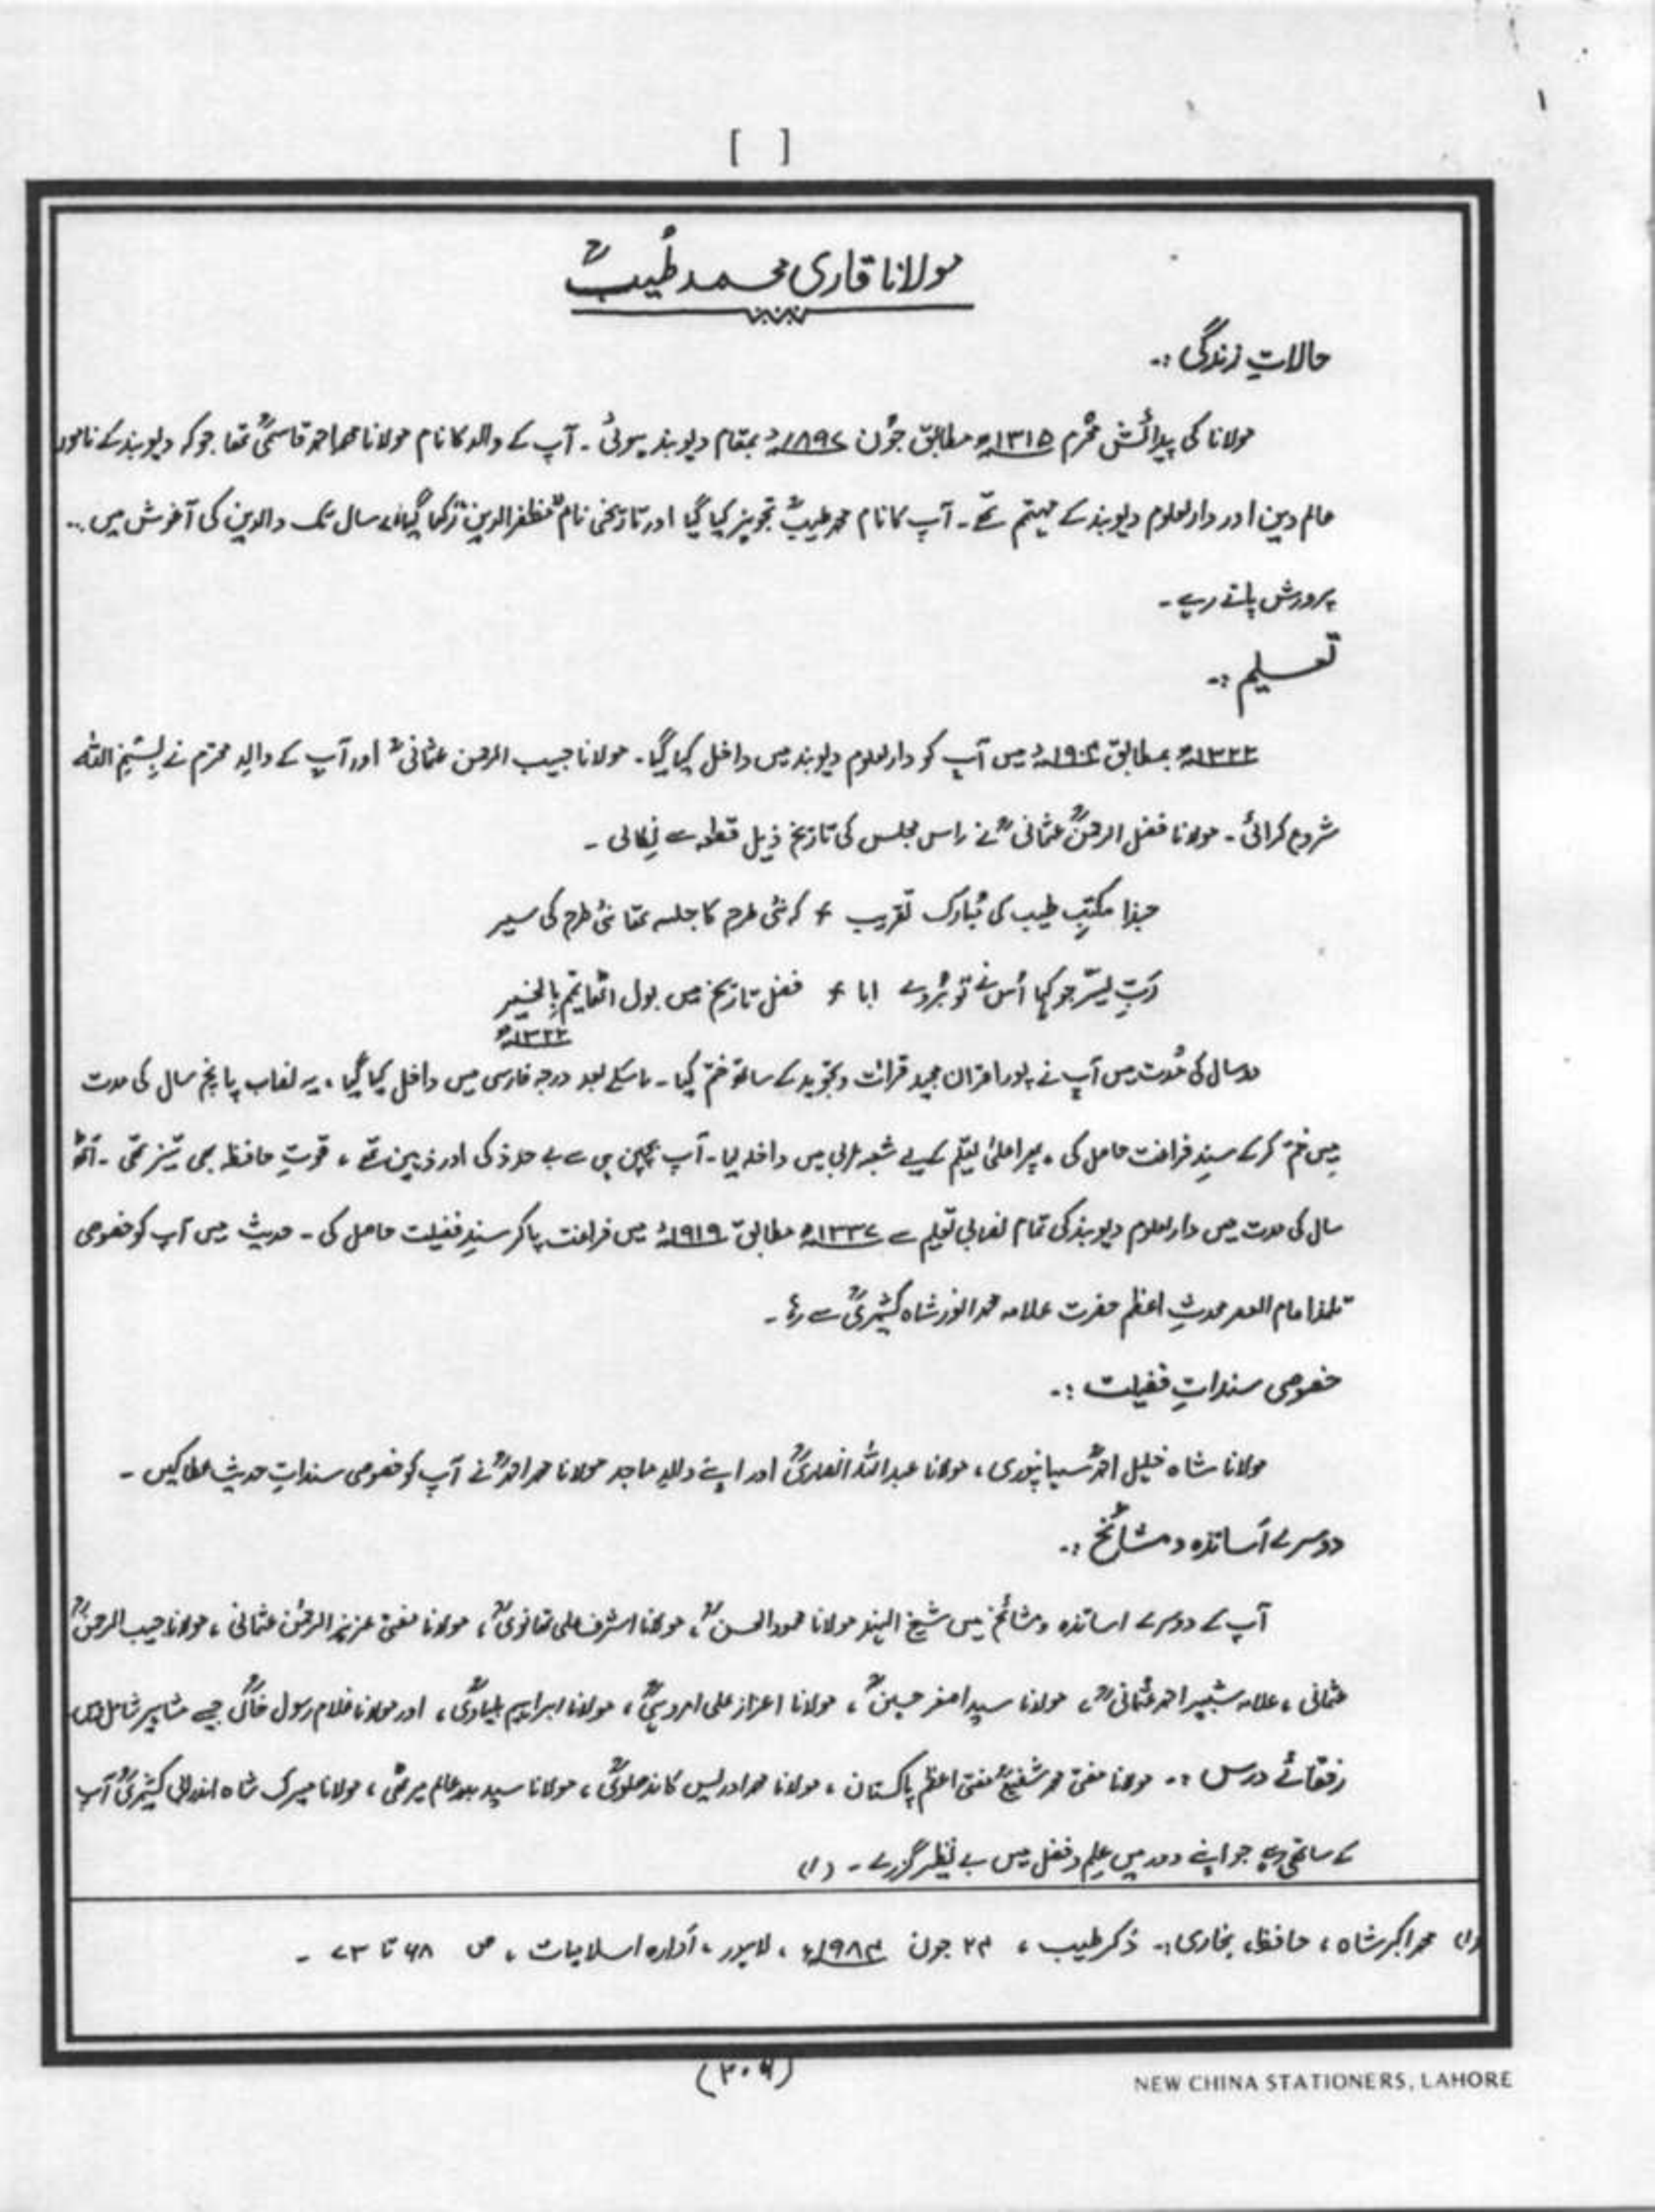 ۱
[ ]
مولانا قاری محمد طیبؒ
حالاتِ زندگی :۔
مولانا کی پیدائش محرم ۱۳۱۵ھ مطابق جون ۱۸۹۷ء بمقام دیوبند ہوئی ۔ آپ کے والد کا نام مولانا محمد احمد قاسمیؒ تھا جو کہ دیوبند کے نامور
عالم دین اور دارالعلوم دیوبند کے مہتمم تھے ۔ آپ کا نام محمد طیبؒ تجویز کیا گیا اور تاریخی نام "مظفرالدین" رکھا گیا ۷ سال تک والدین کی آغوش میں ..
پرورش پاتے رہے ۔
تعلیم :۔
۱۳۲۲ھ بمطابق ۱۹۰۴ء میں آپ کو دارالعلوم دیوبند میں داخل کیا گیا ۔ مولانا حبیب الرحمن عثمانیؒ اور آپ کے والدِ محترم نے بِسْمِ اللہ
شروع کرائی ۔ مولانا فضل الرحمنؒ عثمانیؒ نے اِس مجلس کی تاریخ ذیل قطعہ سے نِکالی ۔
حبذا مکتبِ طیب کی مُبارک تقریب ؎ کہ نئی طرح کا جلسہ تھا نئی طرح کی سیر
رَبِّ یسّر جو کہا اُس نے تو بڑوے ابا ؎ فضل تاریخ میں بول اٹھا تمّم بِالخیر
۱۳۲۲ھ
دو سال کی مُدت میں آپ نے پورا قران مجید قرائت و تجوید کے ساتھ ختم کیا ۔ اسکے بعد درجہ فارسی میں داخل کیا گیا ، یہ نصاب پانچ سال کی مدت
میں ختم کرکے سندِ فراغت حاصل کی ، پھر اعلیٰ تعلیم کے لیے شعبہ عربی میں داخلہ لیا ۔ آپ بچپن ہی سے بے حد ذکی اور ذہین تھے ، قوتِ حافظہ بھی تیز تھی ۔ آٹھ
سال کی مدت میں دارالعلوم دیوبند کی تمام نصابی تعلیم سے ۱۳۳۷ھ مطابق ۱۹۱۹ء میں فراغت پاکر سندِ فضیلت حاصل کی ۔ حدیث میں آپ کو خصوصی
تلمذ امام العصر محدثِ اعظم حضرت علامہ محمد انور شاہ کشمیریؒ سے رہا ۔
خصوصی سنداتِ فضیلت :۔
مولانا شاہ خلیل احمدؒ سہانپوری ، مولانا عبداللہ انصاریؒ اور اپنے والدِ ماجد مولانا محمد احمدؒ نے آپ کو خصوصی سنداتِ حدیث عطا کیں ۔
دوسرے اَساتذہ و مشائخ :۔
آپ کے دوسرے اساتذہ و مشائخ میں شیخ الہند مولانا محمود الحسنؒ ، مولانا اشرف علی تھانویؒ ، مولانا مفتی عزیز الرحمٰن عثمانی ، مولانا حبیب الرحمنؒ
عثمانی ، علامہ شبیر احمد عثمانیؒ ، مولانا سید اصغر حسینؒ ، مولانا اعزاز علی امروہیؒ ، مولانا ابراہیم بلیاویؒ ، اور مولانا غلام رسول خانؒ جیسے مشاہیر شامل ہیں
رفقائے درس :۔ مولانا مفتی محمد شفیعؒ مفتی اعظم پاکستان ، مولانا محمد ادریس کاندھلویؒ ، مولانا سید بدر عالم میرٹھی ، مولانا میرک شاہ اندرابی کشمیریؒ آپ
کے ساتھی رہے جو اپنے دور میں علِم و فضل میں بے نظیر گزرے ۔ (۱)
(۱) محمد اکبر شاہ ، حافظ ، بخاری :۔ ذکر طیب ، ۲۴ جون ۱۹۸۴ء ، لاہور ، اَدارہ اسلامیات ، ص ۶۸ تا ۷۳ ۔
(۳۰۶)
NEW CHINA STATIONERS, LAHORE